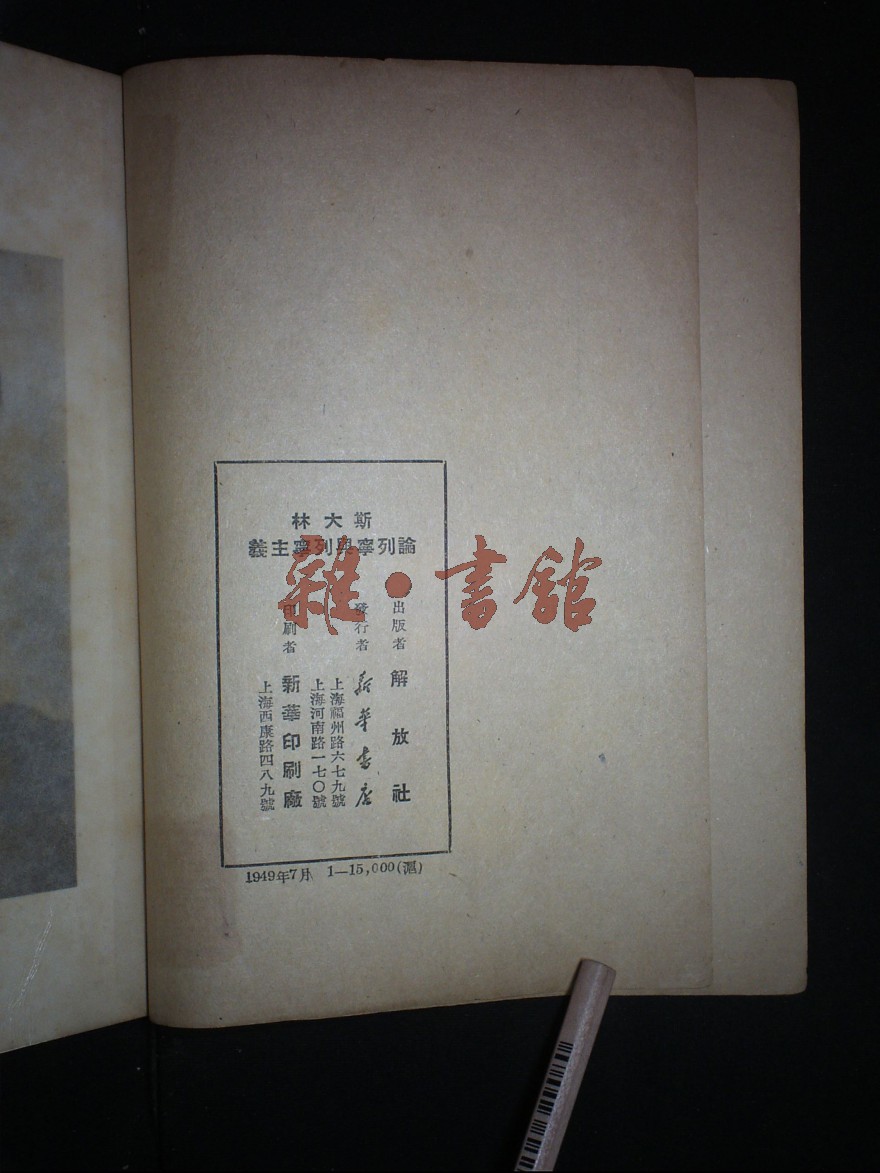 斯大林
論列寧與列寧主義
出版者 解放社
發行者 新華書店
上海福州路六七九號
上海河南路一七〇號
印刷者 新華印刷廠
上海西康路四八九號
1949年7月 1—15,000(滬)
雜·書館